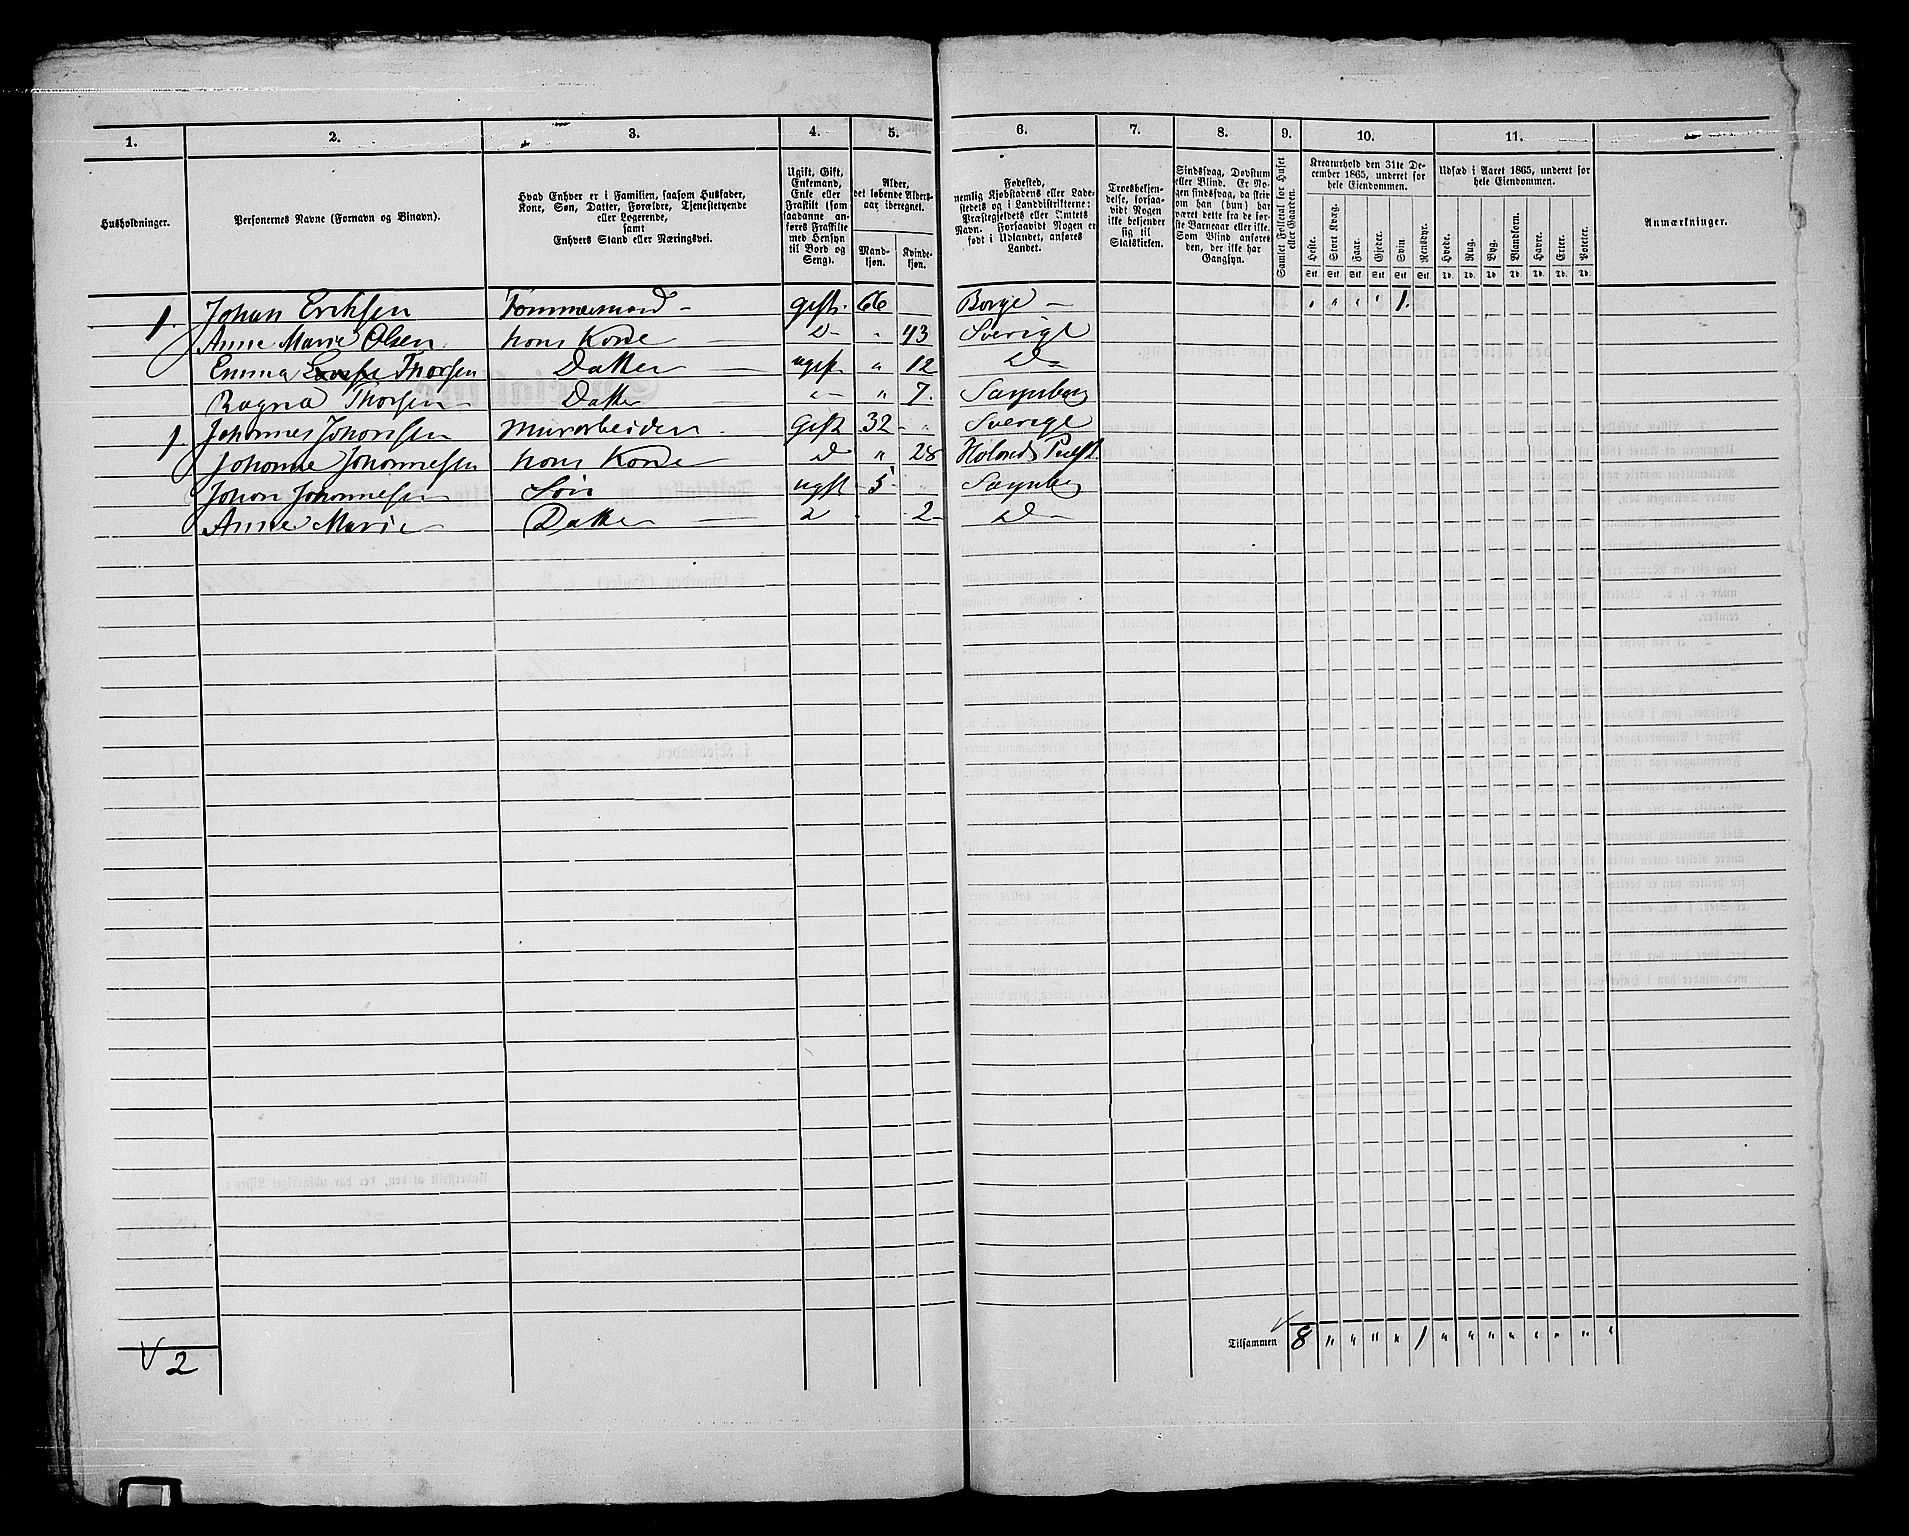 1. 2. 3. 4. 5. 6. 7. 8. 9. 10. 11.
Husholdninger.
Personernes Navne (Fornavn og Binavn).
Hvad Enhver er i Familien, saasom Husfader,
Kone, Søn, Datter, Forældre, Tjenestetyende
eller Logerende,
samt
Enhvers Stand eller Næringsvei.
Ugift, Gift,
Enkemand,
Enke eller
Fraskilt (som
saadanne an-
føres Fraskilte
med Hensyn
til Bord og
Seng).
Alder,
det løbende Alders-
aar iberegnet.
Mand-
kjøn.
Kvinde-
kjøn.
Fødested,
nemlig Kjøbstadens eller Lade-
stedets og i Landdistrikterne:
Præstegjeldets eller Amtets
Navn. Forsaavidt Nogen er
født i Udlandet, anføres
Landet.
Troesbekjen-
delse, forsaa-
vidt Nogen
ikke bekjender
sig til
Statskirken.
Sindssvag, Døvstum
eller Blind. Er No-
gen sindssvag, da skrives
om han (hun) har
været dette fra de før-
ste Barneaar eller ikke.
Som Blind anføres
den, der ikke har
Gangsyn.
Samlet Folketal for Huset
eller Gaarden.
Kreaturhold den 31te De-
cember 1865, underet for
hele Eiendommen.
Heste. Stort Kvæg. Faar. Gjeder. Svin. Rensdyr.
Stk. Stk. Stk. Stk. Stk. Stk.
Udsæd i Aaret 1865, underet for
hele Eiendommen.
Hvede. Rug. Byg. Blandkorn. Havre. Erter. Poteter.
Td. Td. Td. Td. Td. Td. Td.
Anmærkninger.
1. Johan Eriksen Tømmermand - gift. 66 Borge - " " " " 1.
Anne Marie Olsen hans Kone - D " 43 Sverige
Emma Thorsen Datter ugift " 12 D
Ragna Thorsen Datter - " - " 7. Sarpsborg
1 Johannes Johansen Murarbeider - Gift 32 - " Sverige
Johanne Johannesen hans Kone D " 28 Hølands
Johan Johannesen Søn ugift - 5 - " Sarpsborg
Anne Marie Datter - D 2 - D -
Tilsammen 8 " " " " 1 " " " " " " " "
√ 2